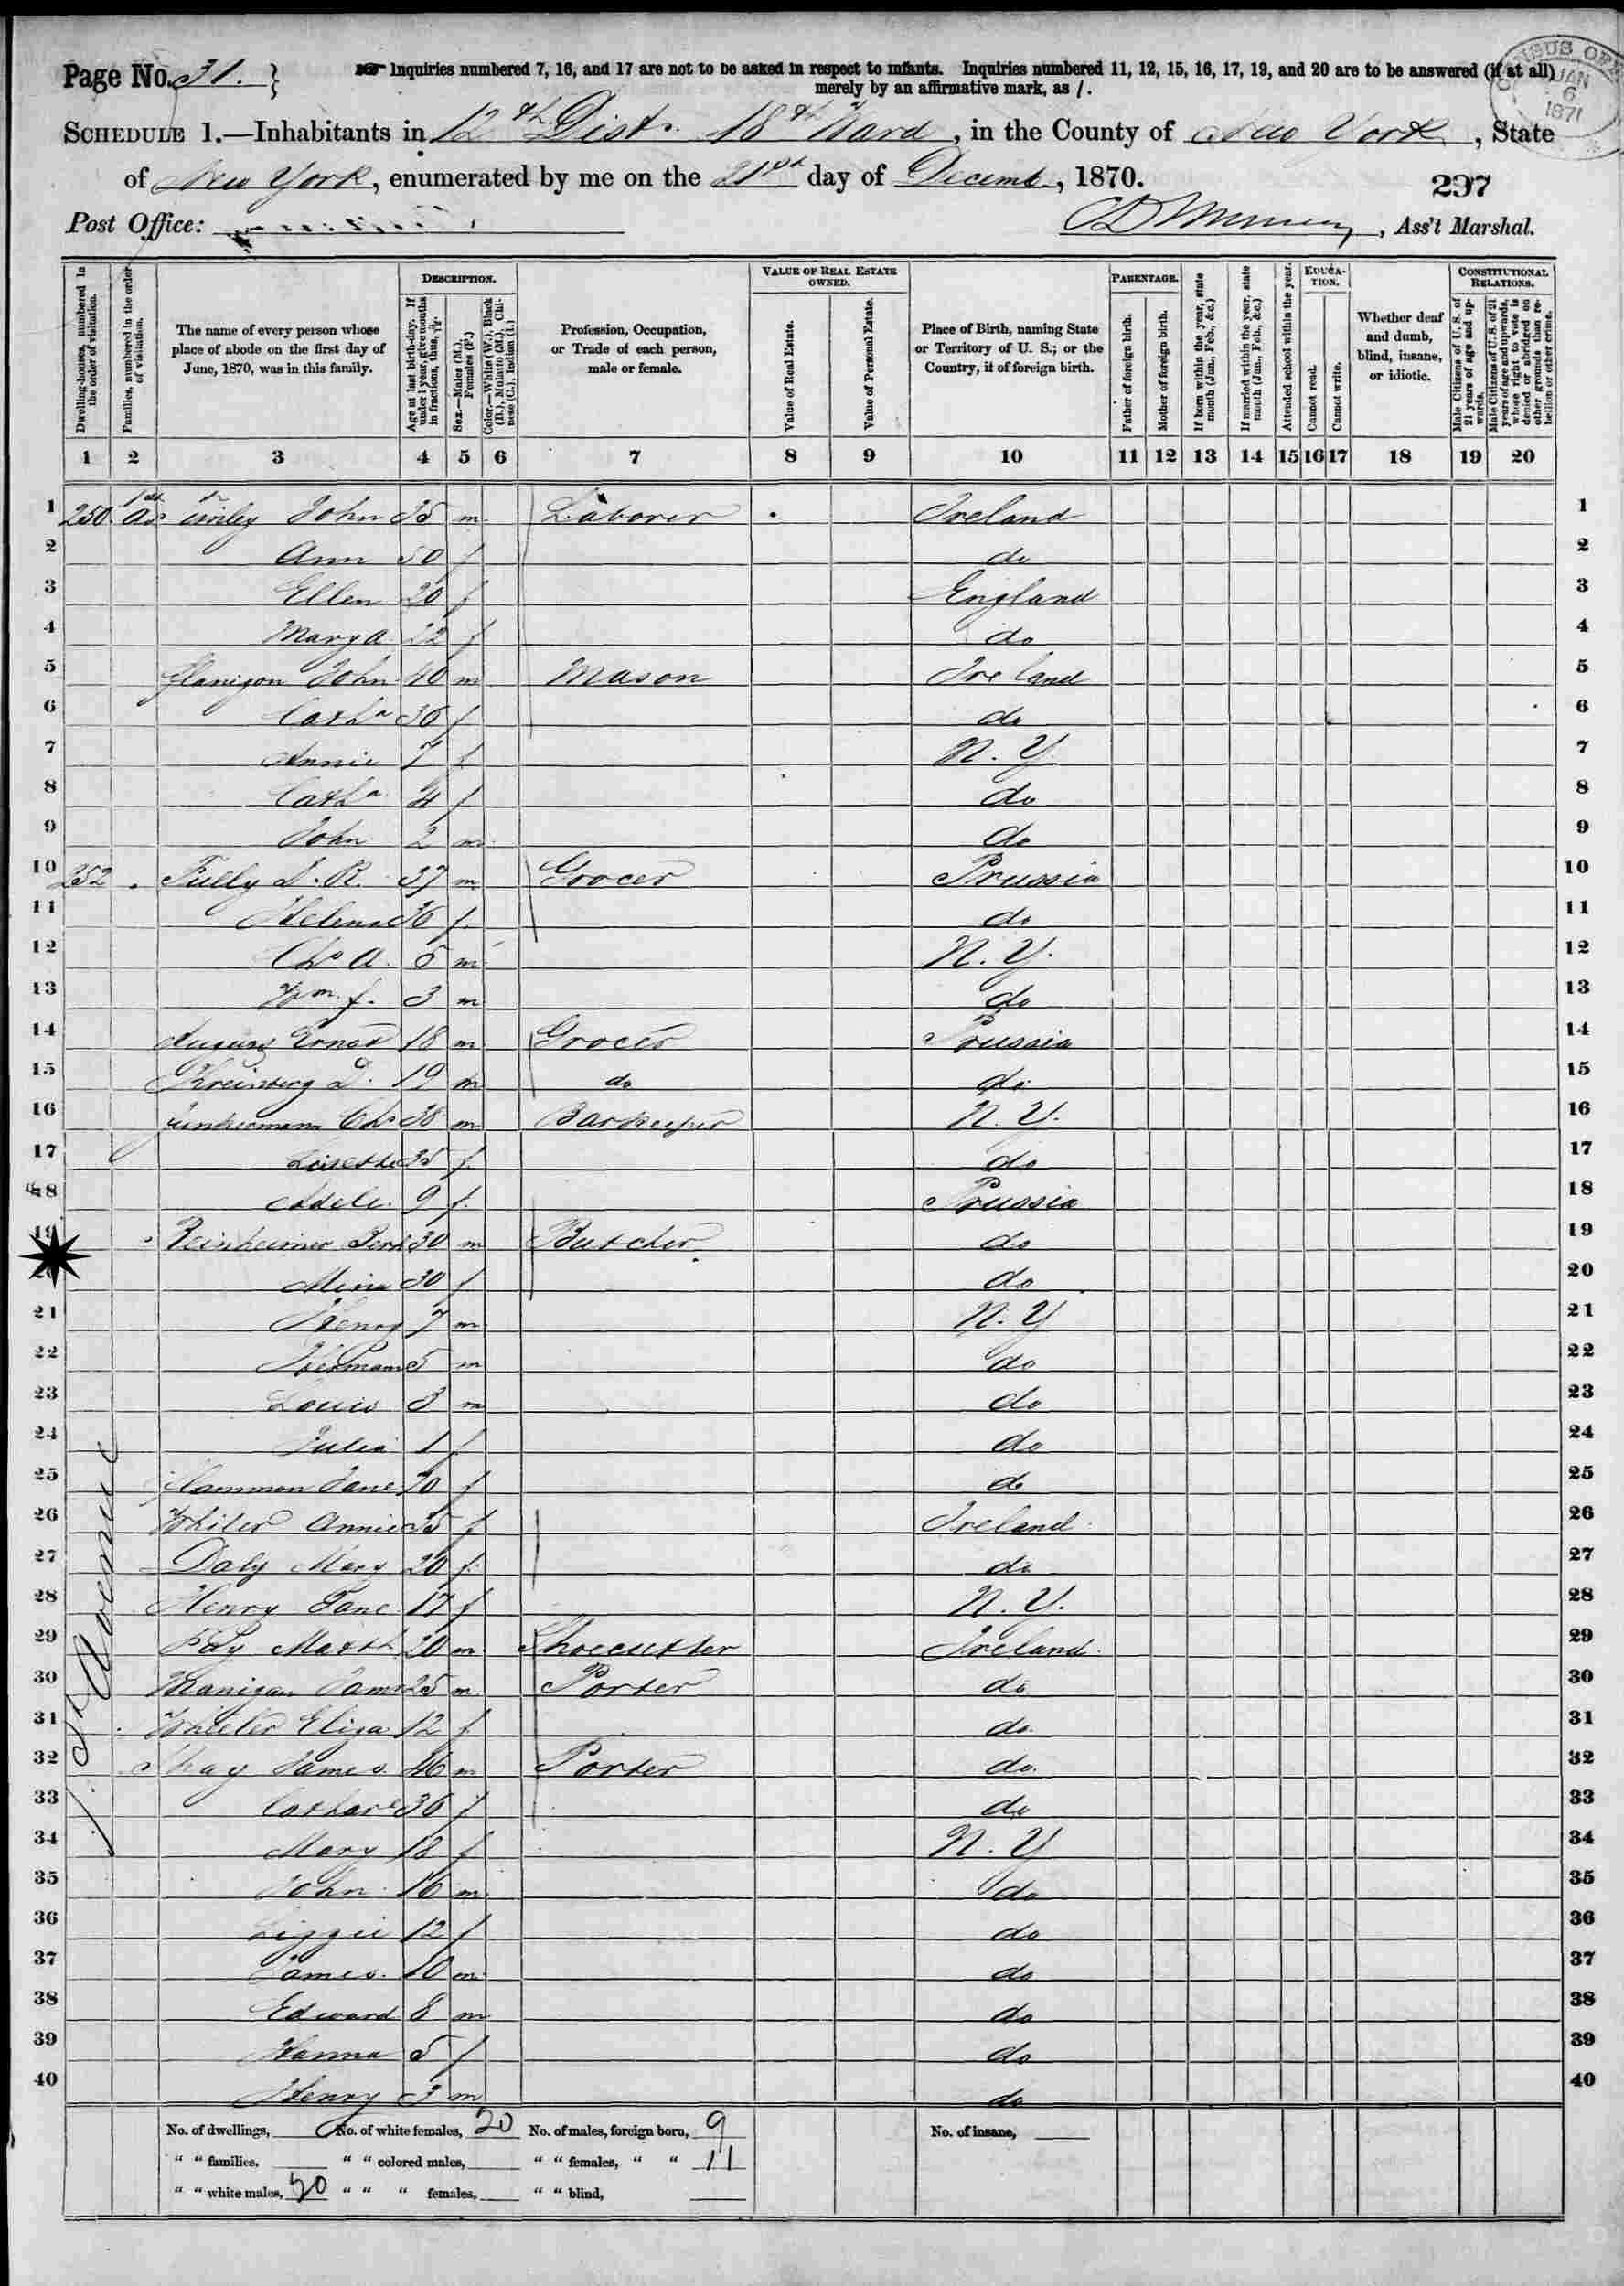 Page No. 31.
Inquiries numbered 7, 16, and 17 are not to be asked in respect to infants. Inquiries numbered 11, 12, 15, 16, 17, 19, and 20 are to be answered (if at all)
merely by an affirmative mark, as /.
CENSUS OFF JAN 6 1871
SCHEDULE 1.—Inhabitants in 12th Dist. 18th Ward, in the County of New York, State
of New York, enumerated by me on the 21st day of Decemb, 1870.
297
Post Office:
, Ass't Marshal.
Dwelling-houses, numbered in the order of visitation.
Families, numbered in the order of visitation.
The name of every person whose place of abode on the first day of June, 1870, was in this family.
DESCRIPTION.
Age at last birth-day. If under 1 year, give months in fractions, thus, 3/12.
Sex.—Males (M.), Females (F.)
Color.—White (W.), Black (B.), Mulatto (M.), Chinese (C.), Indian (I.)
Profession, Occupation, or Trade of each person, male or female.
VALUE OF REAL ESTATE OWNED.
Value of Real Estate.
Value of Personal Estate.
Place of Birth, naming State or Territory of U. S.; or the Country, if of foreign birth.
PARENTAGE.
Father of foreign birth.
Mother of foreign birth.
If born within the year, state month (Jan., Feb., &c.)
If married within the year, state month (Jan., Feb., &c.)
Attended school within the year.
EDUCATION.
Cannot read.
Cannot write.
Whether deaf and dumb, blind, insane, or idiotic.
CONSTITUTIONAL RELATIONS.
Male Citizens of U. S. of 21 years of age and upwards.
Male Citizens of U. S. of 21 years of age and upwards, whose right to vote is denied or abridged on other grounds than rebellion or other crime.
1 2 3 4 5 6 7 8 9 10 11 12 13 14 15 16 17 18 19 20
1 250 1st Av John 35 m Laborer Ireland 1
2 Ann 50 f do 2
3 Ellen 20 f England 3
4 Mary A 22 f do 4
5 Flanigon John 40 m Mason Ireland 5
6 Catha 36 f do 6
7 Annie 7 f N. Y. 7
8 Catha 4 f do 8
9 John 2 m do 9
10 252 37 m Grocer Prussia 10
11 Helena 36 f do 11
12 Chs A. 5 m N. Y. 12
13 Wm. f. 3 m do 13
14 August Ernst 18 m Grocer Prussia 14
15 Kreinberg D. 19 m do do 15
16 Chs 38 m Barkeeper N. Y. 16
17 Lisette 35 f do 17
18 Adele 9 f Prussia 18
19 Reinheimer 30 m Butcher do 19
20 Mina 30 f do 20
21 Henry 7 m N. Y 21
22 Herman 5 m do 22
23 Louis 3 m do 23
24 Julia 1 f do 24
25 Jane 20 f do 25
26 Annie 35 f Ireland 26
27 Daly Mary 20 f do 27
28 Henry Jane 17 f N. Y. 28
29 Matth 20 m Shoecutter Ireland 29
30 25 m Porter do 30
31 Wheeler Eliza 12 f do 31
32 Shay James 46 m Porter do 32
33 Cathare 36 f do 33
34 Mary 18 f N. Y 34
35 John 16 m do 35
36 Lizzie 12 f do 36
37 James 10 m do 37
38 Edward 8 m do 38
39 Hanna 5 f do 39
40 Henry 3 m do 40
1st Avenue
No. of dwellings, No. of white females, 20 No. of males, foreign born, 9 No. of insane,
" " families, " " colored males, " " females, " " 11
" " white males, 20 " " " females, " " blind,